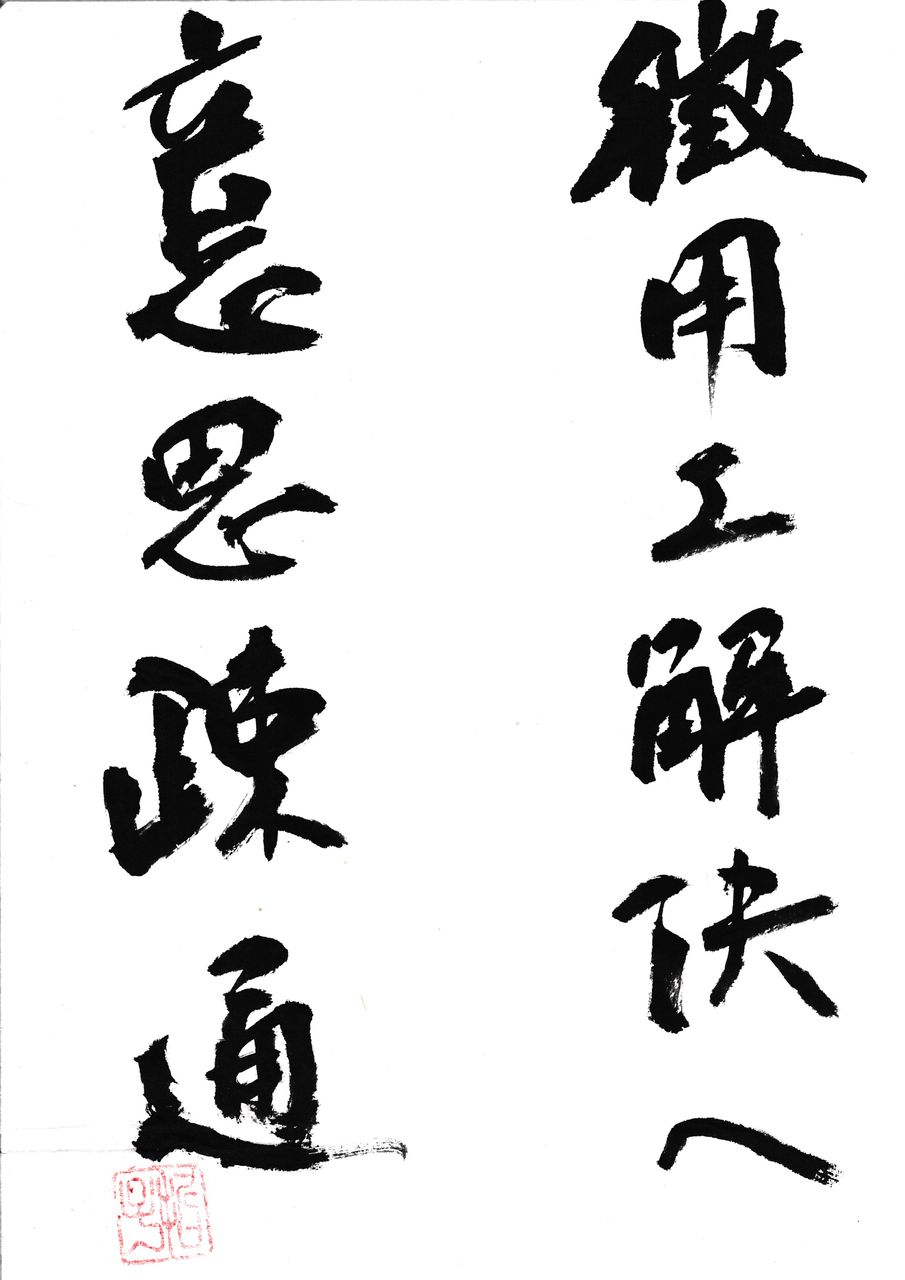 徴用工解決へ
意思疎通